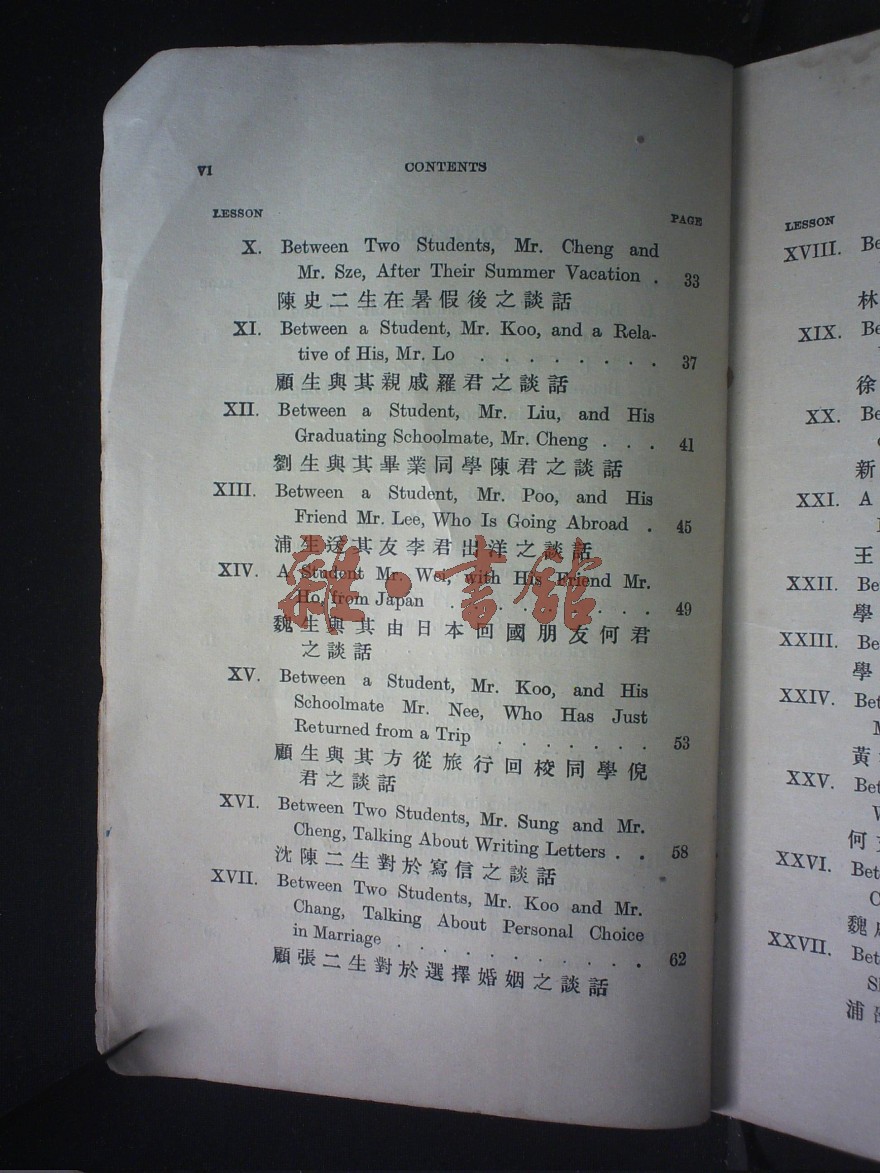 VI CONTENTS
LESSON PAGE
X. Between Two Students, Mr. Cheng and
Mr. Sze, After Their Summer Vacation . 33
陳史二生在暑假後之談話
XI. Between a Student, Mr. Koo, and a Rela-
tive of His, Mr. Lo . . . . . . . . 37
顧生與其親戚羅君之談話
XII. Between a Student, Mr. Liu, and His
Graduating Schoolmate, Mr. Cheng . . . 41
劉生與其畢業同學陳君之談話
XIII. Between a Student, Mr. Poo, and His
Friend Mr. Lee, Who Is Going Abroad . 45
浦生送其友李君出洋之談話
XIV. A Student Mr. Wei, with His Friend Mr.
Ho, from Japan . . . . . . . . . 49
魏生與其由日本回國朋友何君
之談話
XV. Between a Student, Mr. Koo, and His
Schoolmate Mr. Nee, Who Has Just
Returned from a Trip . . . . . . . 53
顧生與其方從旅行回校同學倪
君之談話
XVI. Between Two Students, Mr. Sung and Mr.
Cheng, Talking About Writing Letters . . 58
沈陳二生對於寫信之談話
XVII. Between Two Students, Mr. Koo and Mr.
Chang, Talking About Personal Choice
in Marriage . . . . . . . . . . 62
顧張二生對於選擇婚姻之談話
雜·書館
LESSON
XVIII.
林
XIX.
徐
XX.
新
XXI. A
王
XXII.
學
XXIII.
學
XXIV.
黃
XXV.
何
XXVI.
魏
XXVII.
浦